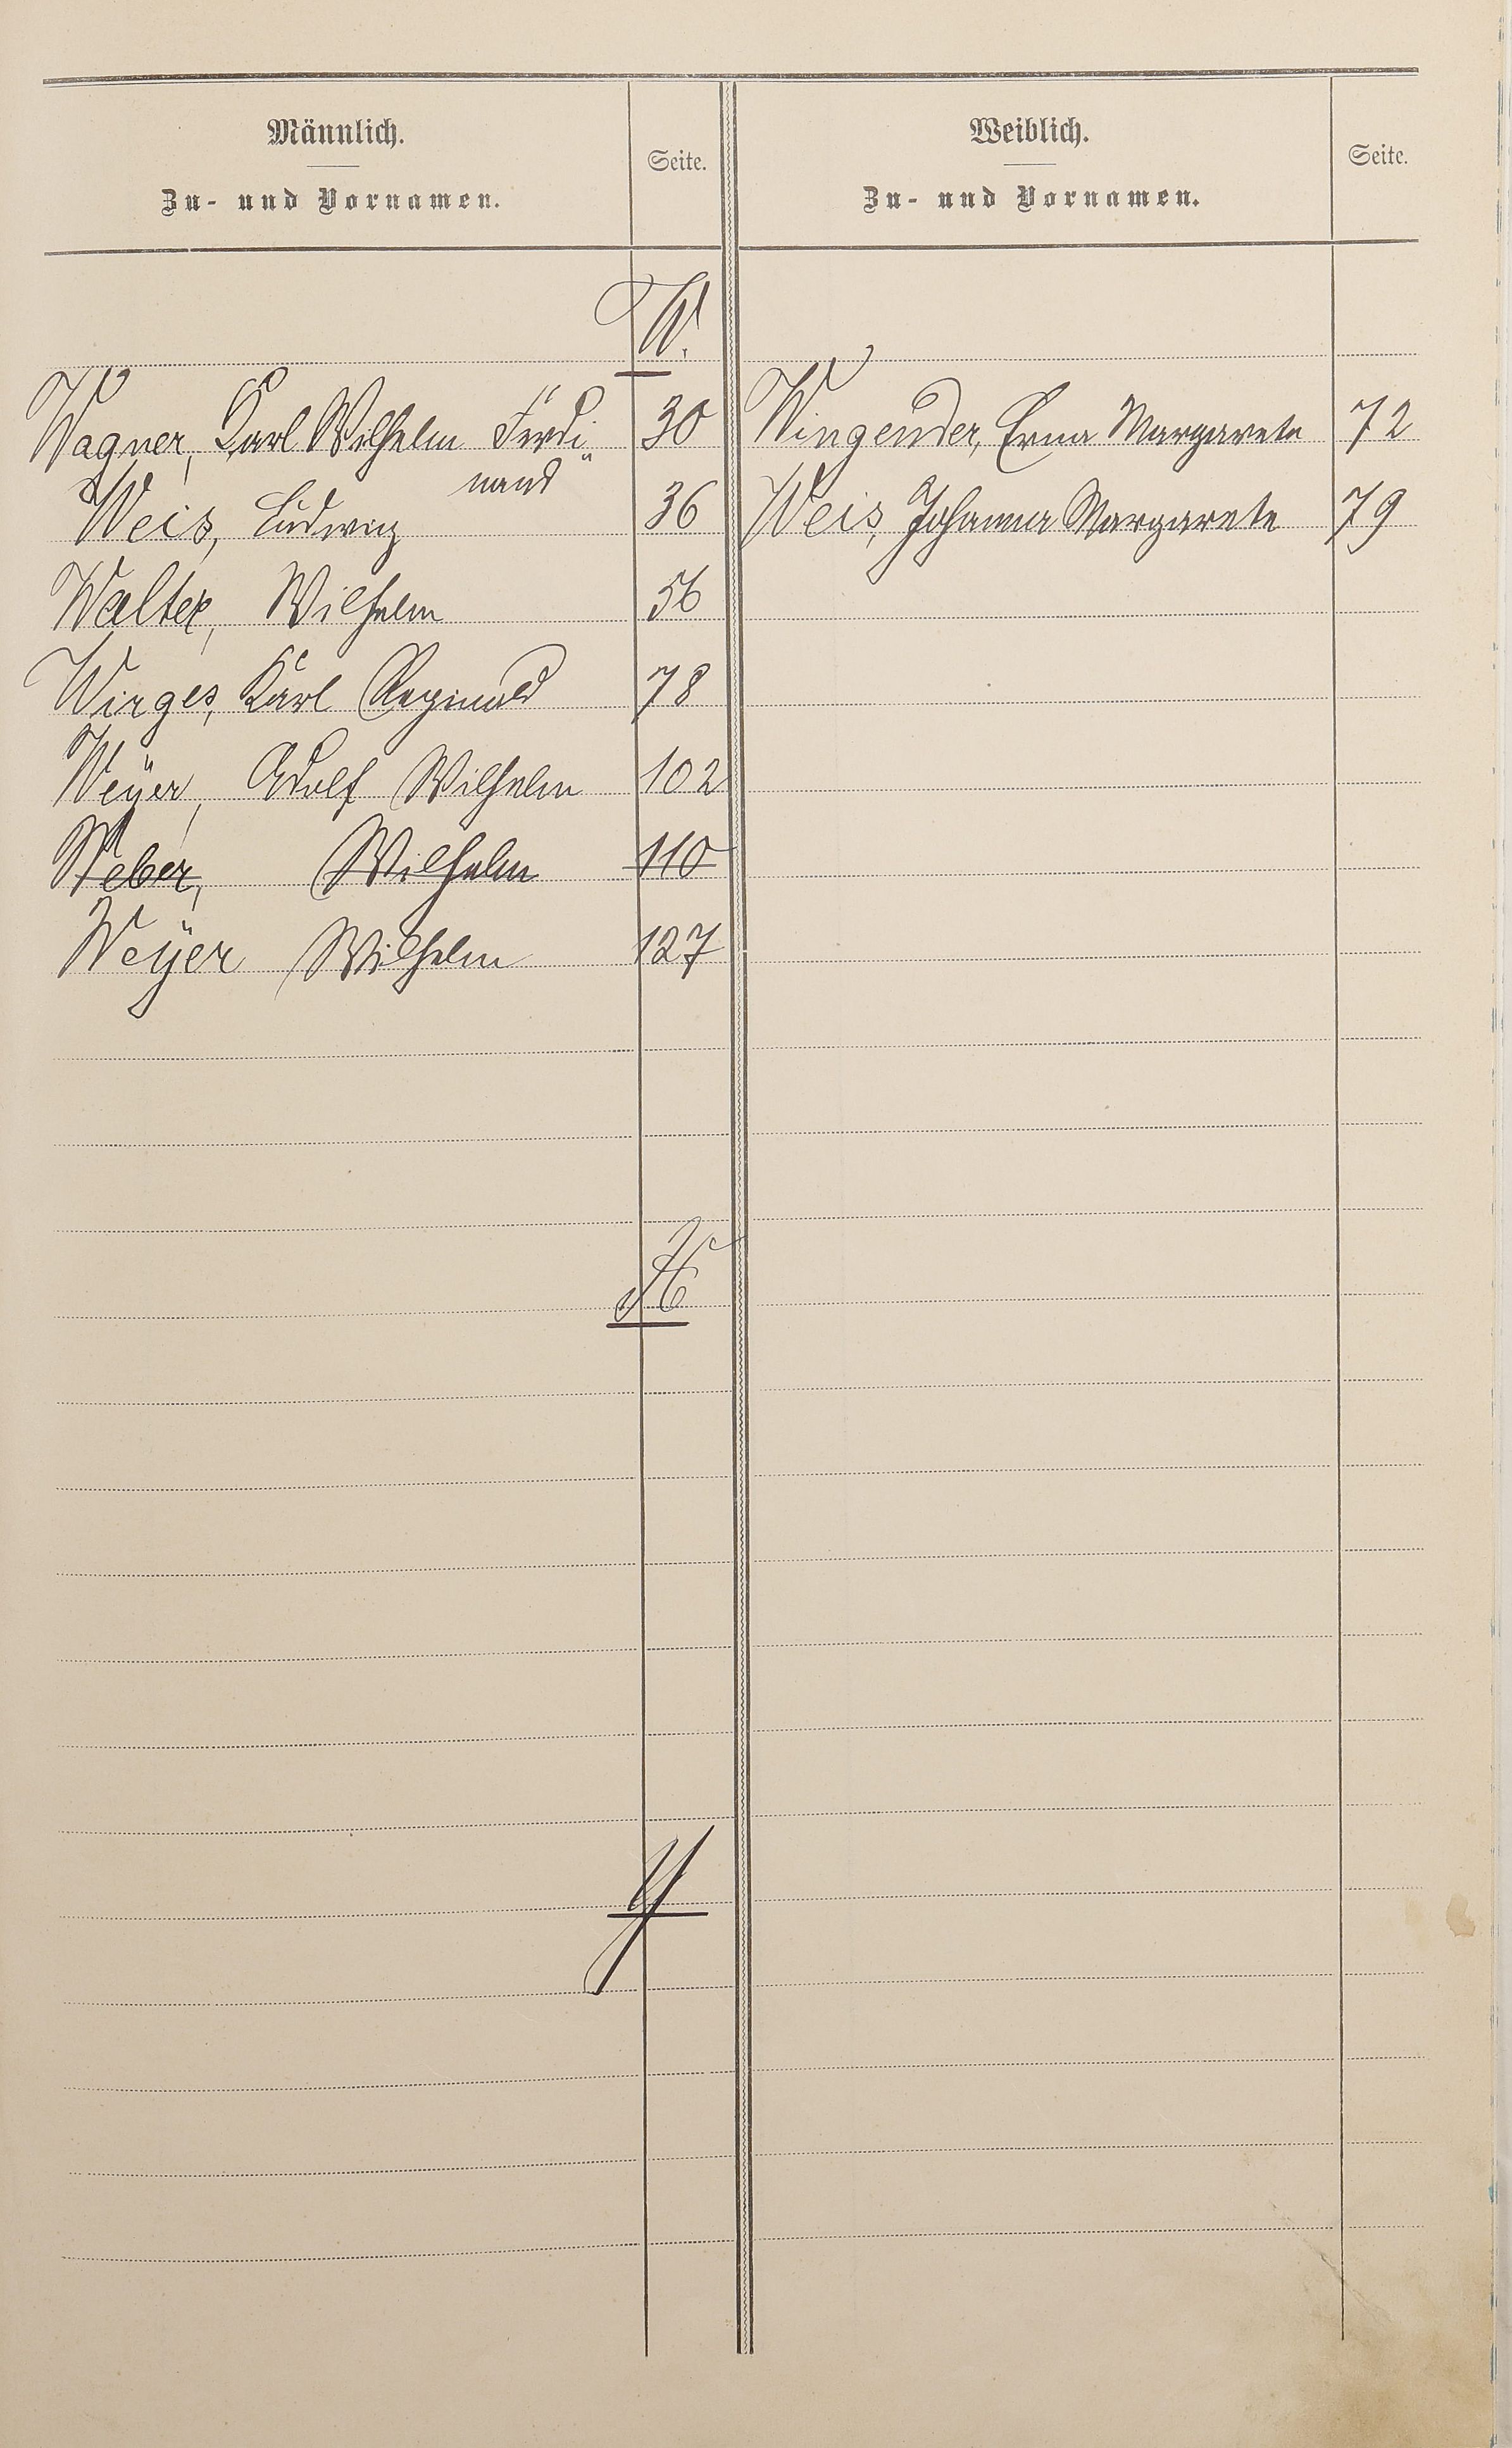 Männlich.
Zu- und Vornamen.
Seite.
Weiblich.
Zu- und Vornamen.
Seite.
W.
Wagner, Karl Wilhelm Ferdi- 30 Wingender, Erna Margarete 72
nand
Weis, Ludwig 36 Weis, Johanna Margarete 79
Walter, Wilhelm 56
Wirges, Karl Reginald 78
Weÿer, Adolf Wilhelm 102
Weber, Wilhelm 110
Weÿer Wilhelm 127
X
Y